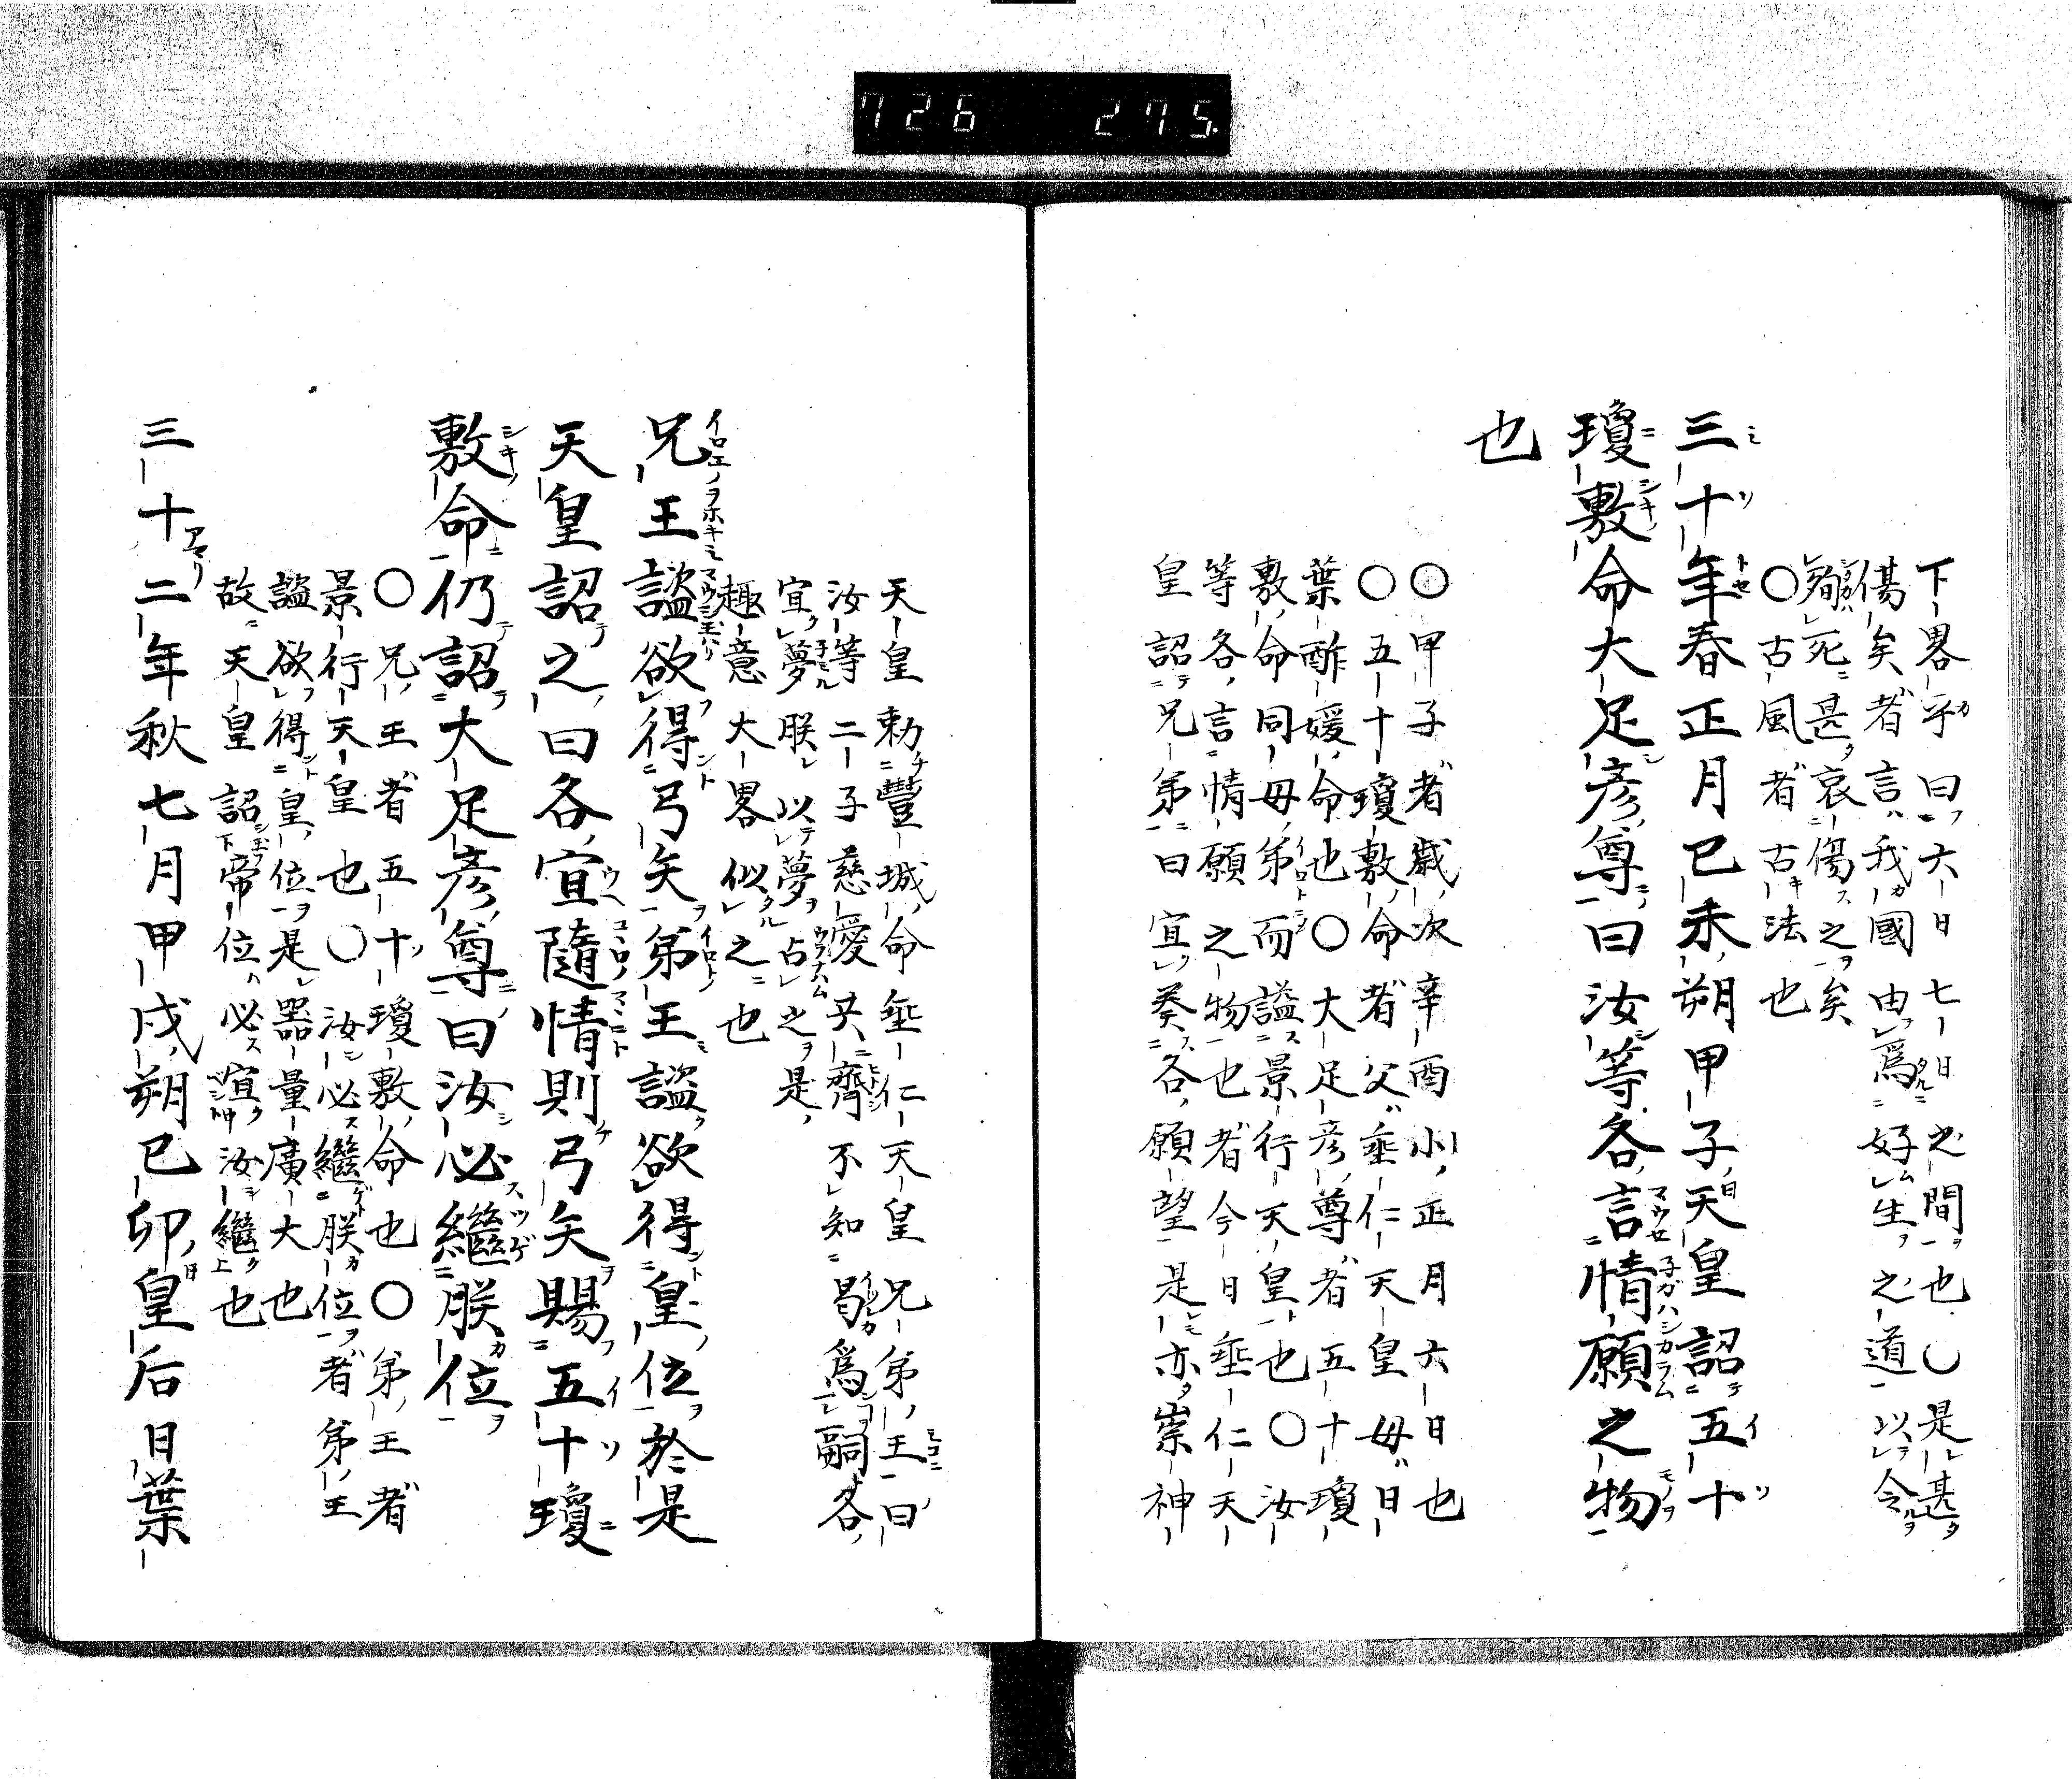 726 275
下畧乎曰六日七日之間也〇是甚
傷矣者言我國由爲好生之道以令
殉死甚哀傷之矣
〇古風者古法也
三十年春正月己未朔甲子天皇詔五十
瓊敷命大足彦尊曰汝等各言情願之物
也
〇甲子者歳次辛酉小正月六日也
〇五十瓊敷命者父垂仁天皇母日
葉酢媛命也〇大足彦尊者五十瓊
敷命同母弟而謚景行天皇也〇汝
等各言情願之物也者今日垂仁天
皇詔兄弟曰宜奏各願望是亦崇神
天皇勅豐城命垂仁天皇兄弟王曰
汝等二子慈愛共齊不知曷爲嗣各
宜夢朕以夢占之是
趣意大畧似之也
兄王謚欲得弓矢弟王謚欲得皇位於是
天皇詔之曰各宜隨情則弓矢賜五十瓊
敷命仍詔大足彦尊曰汝必繼朕位
〇兄王者五十瓊敷命也〇弟王者
景行天皇也〇汝必繼朕位者弟王
謚欲得皇位是器量廣大也
故天皇詔帝位必宜汝繼也
三十二年秋七月甲戌朔己卯皇后日葉